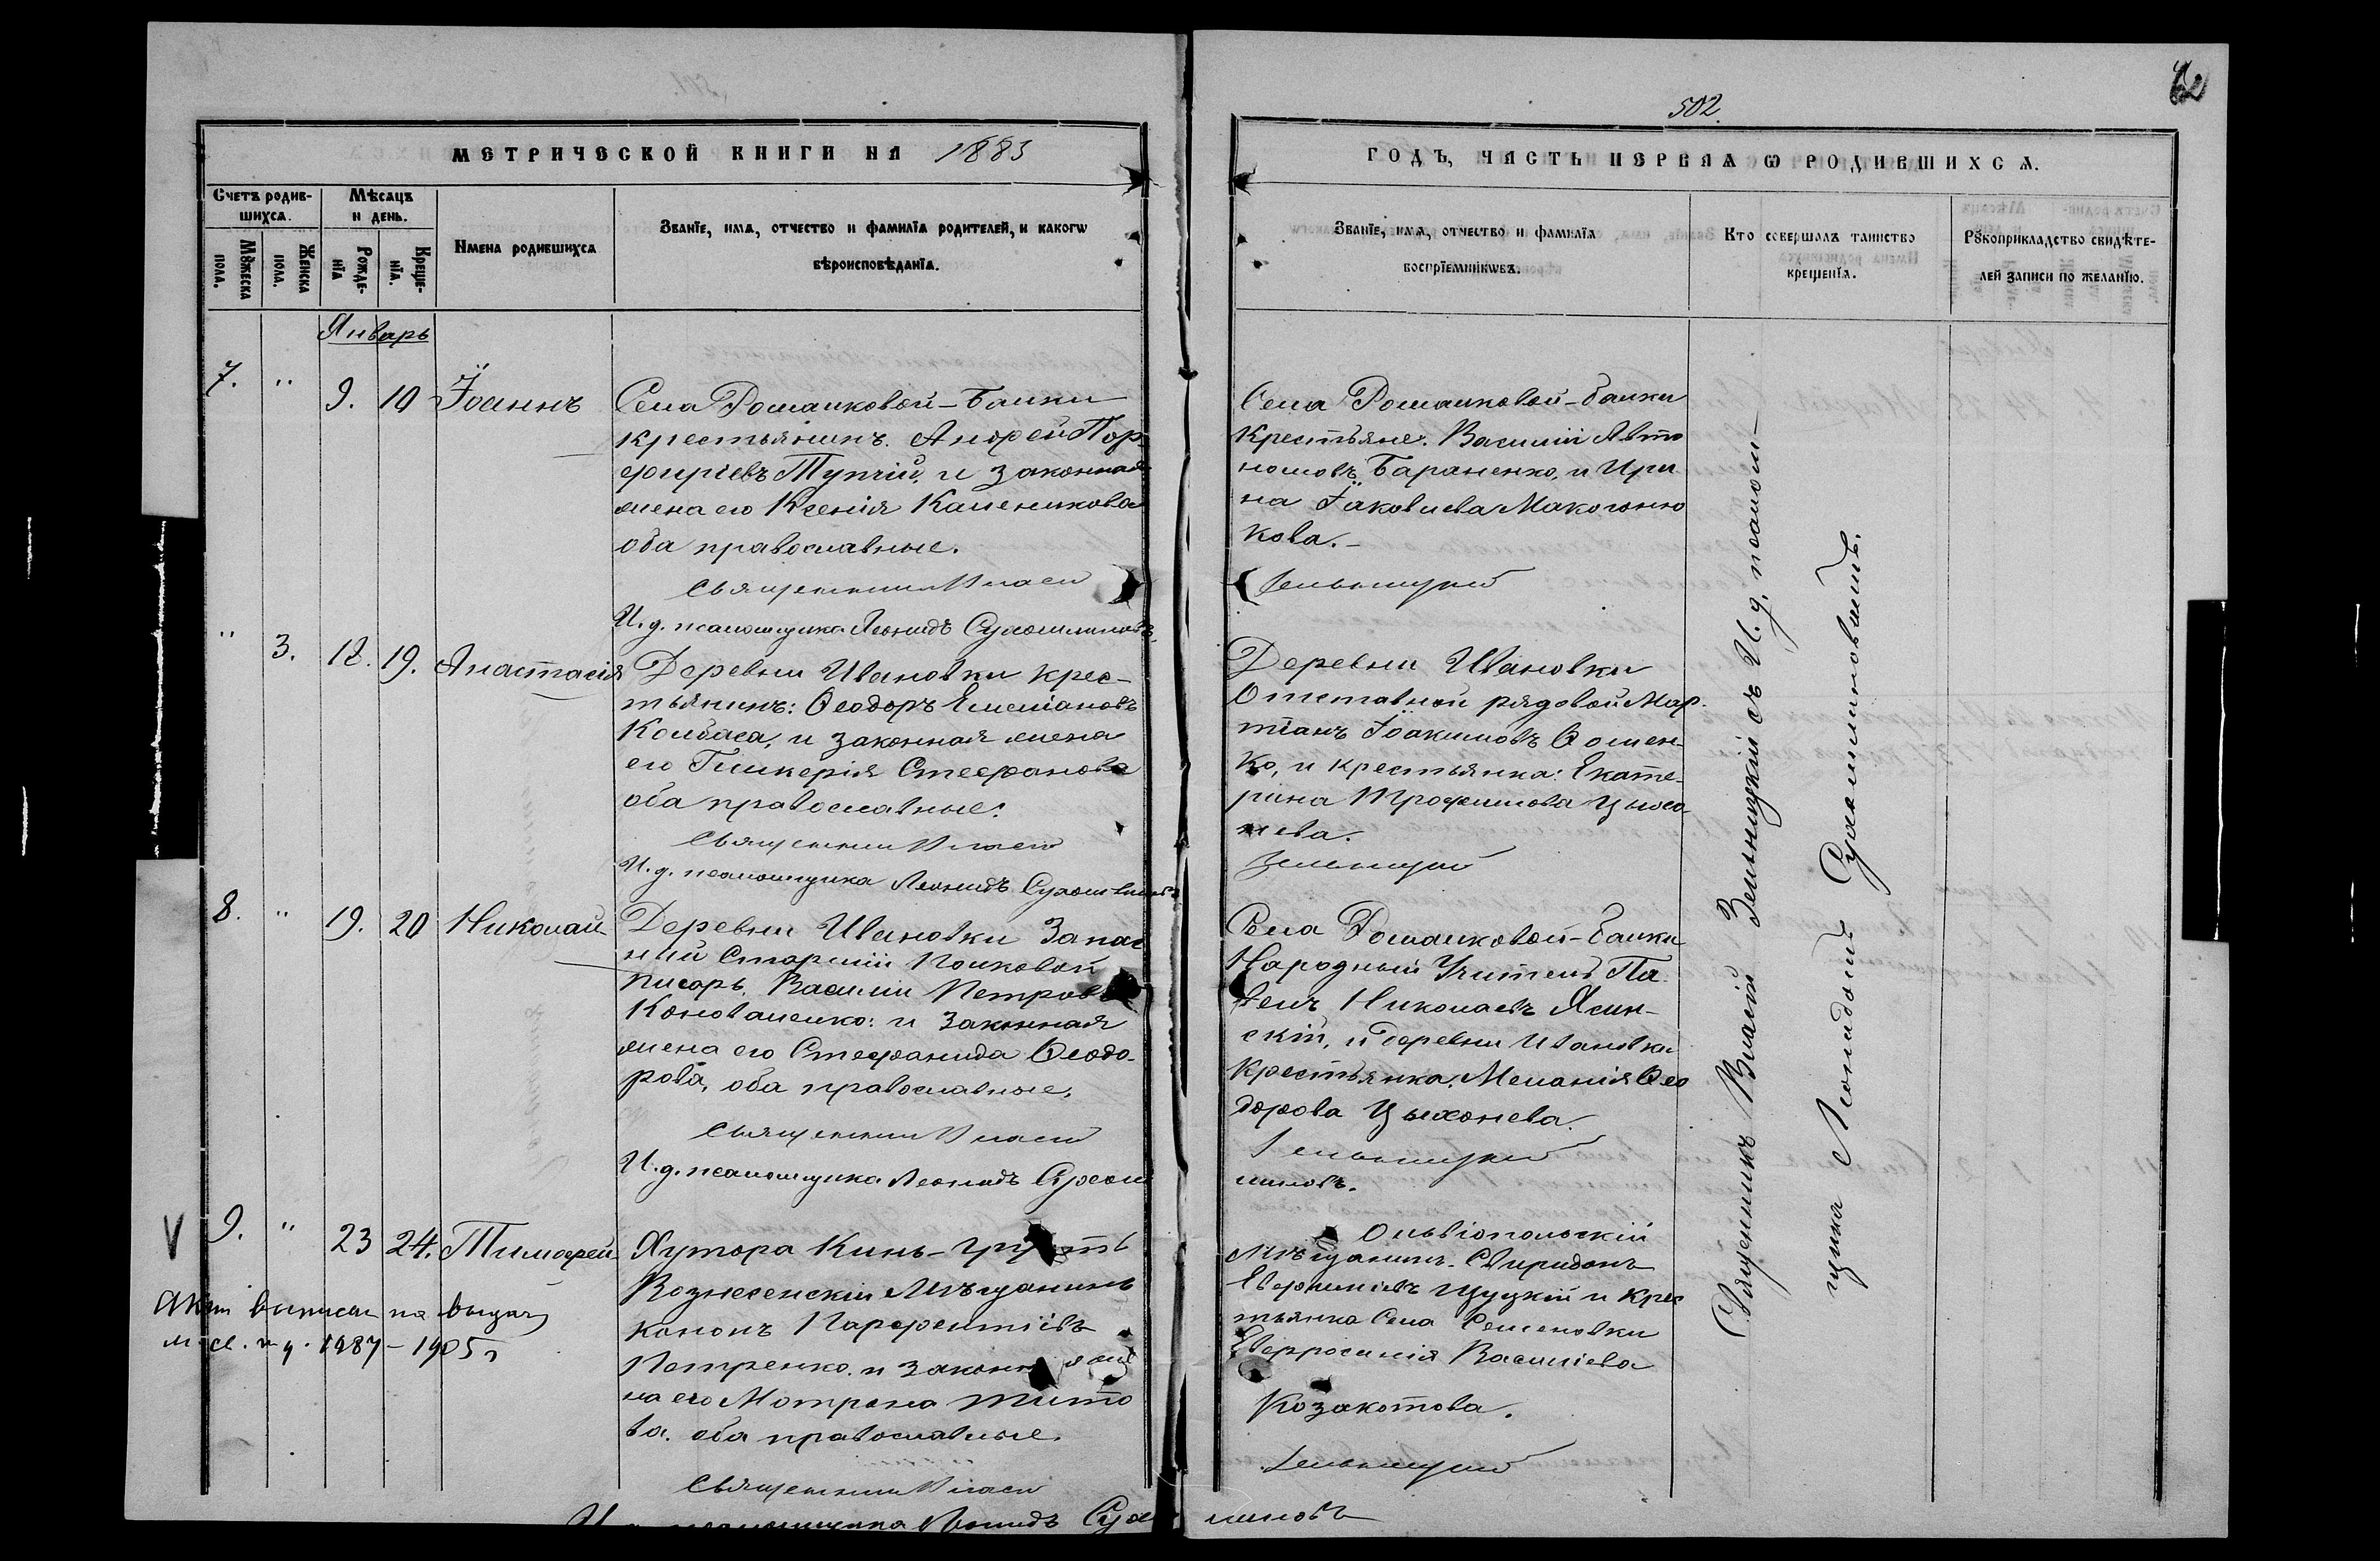 502.
62
МЕТРИЧЕСКОЙ КНИГИ НА 1883
ГОДЪ, ЧАСТЬ ПЕРВАЯ Ѡ РОДИВШИХСЯ.
Счетъ родив-
шихся.
Мѣсяцъ
и день.
Мꙋжеска
пола.
Женска
пола.
Рожде-
нїя
Креще-
нїя.
Имена родившихся
Званїе, имя, отчество и фамилїя родителей, и какогѡ
вѣроисповѣданїя.
Званїе, имя, отчество и фамилїя
воспрїемникѡвъ.
Кто совершалъ таинство
крещенїя.
Рꙋкоприкладство свидѣте-
лей записи по желанїю.
Январь
7. " 9. 10 Іоаннъ
Села Романковой-Балки
крестьянинъ. Андрей Пор-
фиріевъ Тупчій, и законная
жена его Ксенія Каленикова
оба православные.
Священникъ Власій
И. д. псаломщика Леонидъ Сухомлиновъ.
Села Романковой-Балки
Крестьяне: Василій Авто
номовъ Бараненко, и Ири
на Іаковлева Макогоню
кова.
Зельницкій
" 3. 18. 19. Анастасія
Деревни Ивановки крес-
тьянинъ: Ѳеодоръ Емеліановъ
Колбаса, и законная жена
его Гликерія Стефанова
оба православные.
Священникъ Власій
И. д. псаломщика Леонидъ Сухомлиновъ
Деревни Ивановки
Отставной рядовой Мар-
тіанъ Іоакимовъ Ѳомен-
ко, и крестьянка: Екате-
рина Трофимова
нева.
Зельницкій
8. " 19. 20 Николай
Деревни Ивановки Запас
ный Старшій Полковой
писарь, Василій Петровъ
Коноваленко: и законная
жена его Стефанида Ѳеодо-
рова, оба православные.
Священникъ Власій
И. д. псаломщика Леонидъ Сухом
Села Романковой-Балки
Народный Учитель Па
велъ Николаевъ Ясин-
скій, и деревни Ивановки
крестьянка, Меланія Ѳео
дорова Цыхонева.
Зельницкій
линовъ.
V 9. " 23 24. Тимофей
Хутора Кинь-Грусть
Вознесенскій Мѣщанинъ
Кононъ Парфентіевъ
Петренко. и законная же
на его Мотрона Тито
ва. оба православные.
Священникъ Власій
псаломщика Леонидъ Сухо
Ольвіопольскій
Мѣщанинъ. Свиридонъ
Евфиміевъ Цуцкій и крес
тьянка Села Семеновки
Евфросинія Василіева
Козакотова.
Зельницкій
млиновъ
1887 - 1905 г
Священникъ Власій Зельницкій съ И. д. псалом-
щика Леонидомъ Сухомлиновымъ.